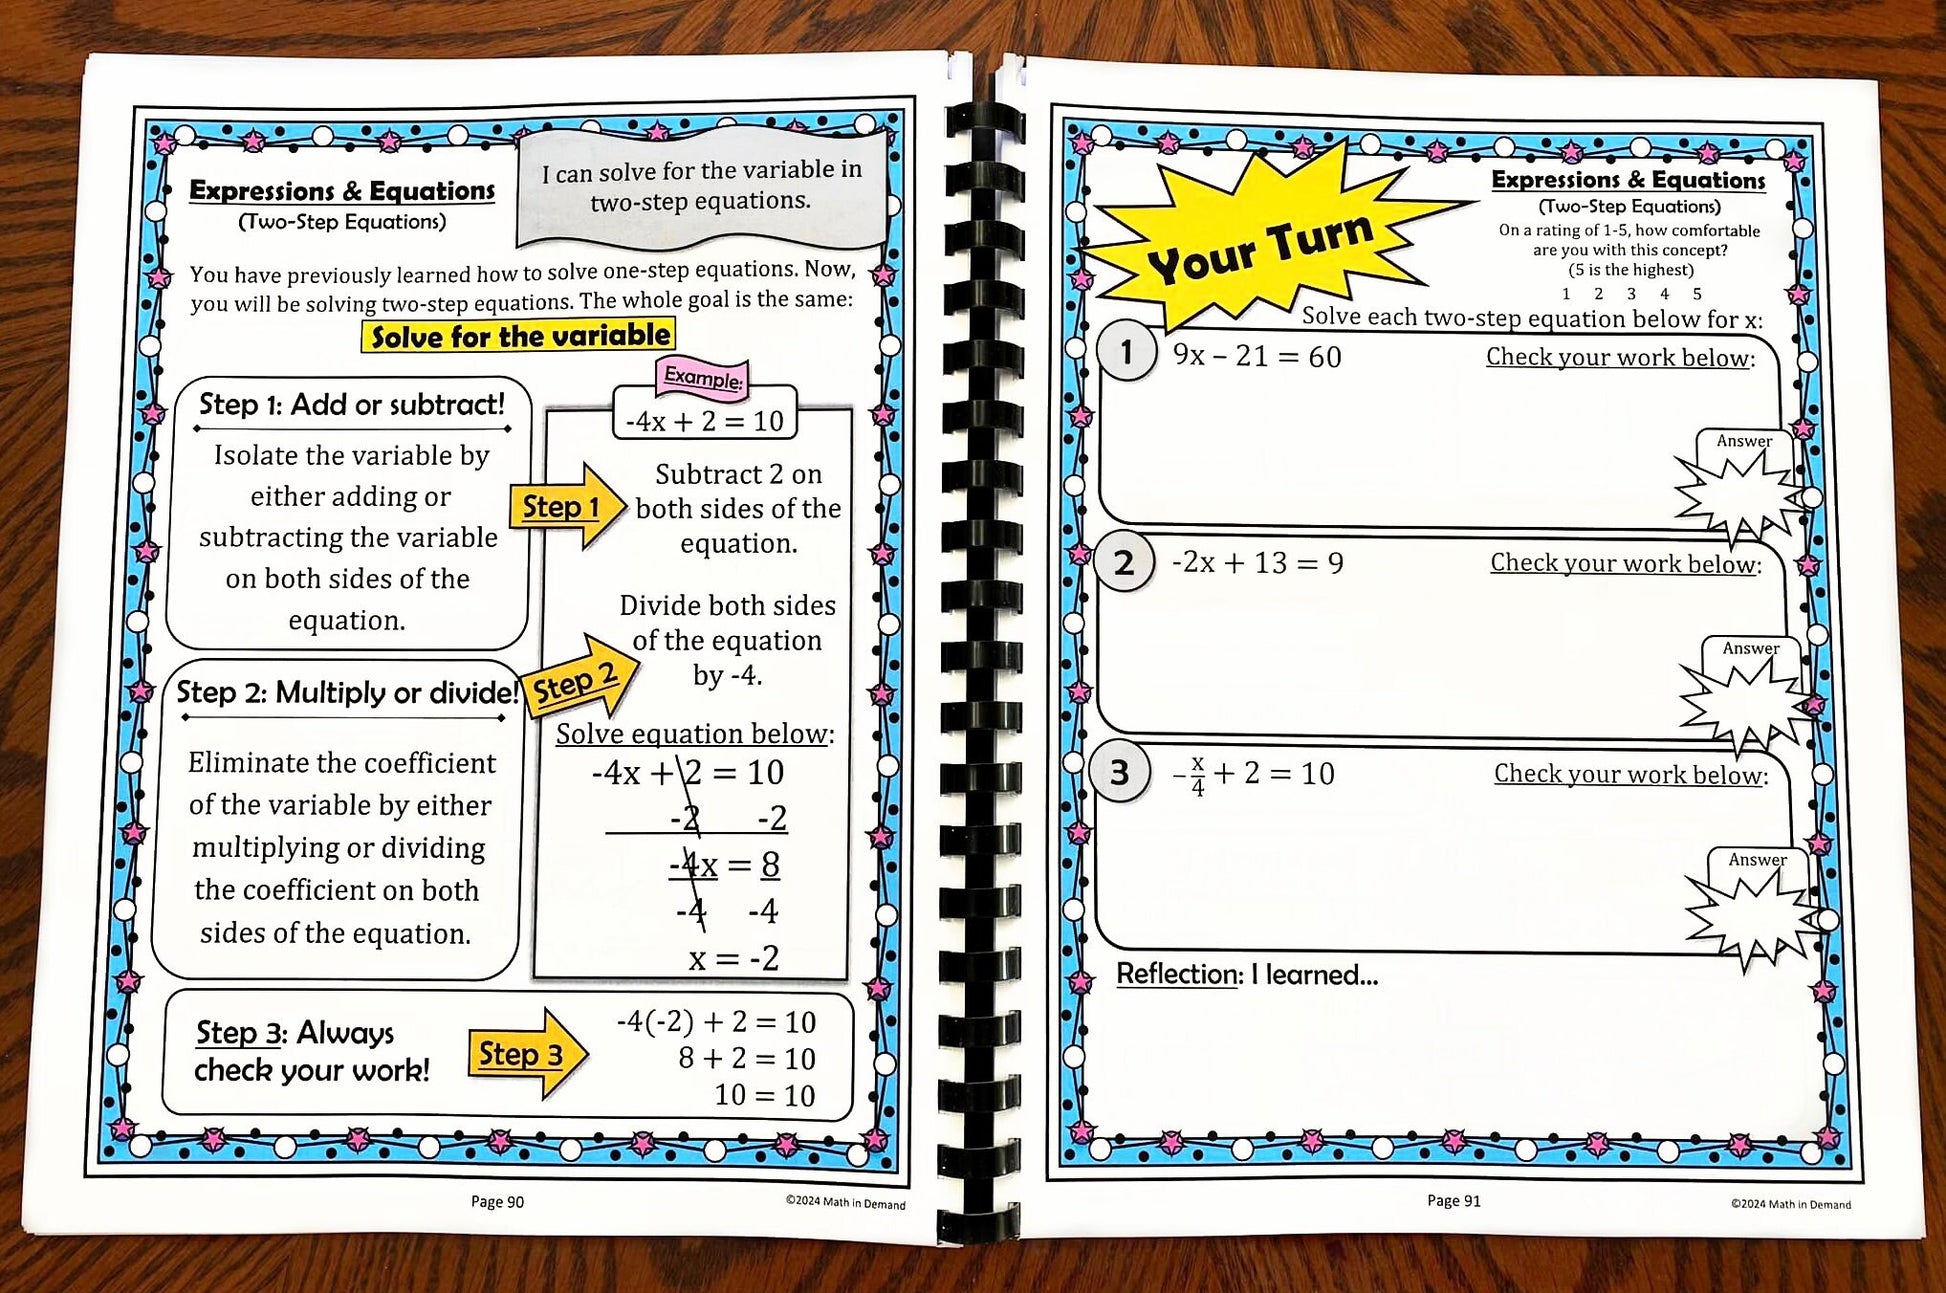 Expressions & Equations
(Two-Step Equations)
I can solve for the variable in
two-step equations.
You have previously learned how to solve one-step equations. Now,
you will be solving two-step equations. The whole goal is the same:
Solve for the variable
Step 1: Add or subtract!
Isolate the variable by
either adding or
subtracting the variable
on both sides of the
equation.
Step 2: Multiply or divide!
Eliminate the coefficient
of the variable by either
multiplying or dividing
the coefficient on both
sides of the equation.
Example:
-4x + 2 = 10
Step 1
Subtract 2 on
both sides of the
equation.
Step 2
Divide both sides
of the equation
by -4.
Solve equation below:
-4x + 2 = 10
-2 -2
-4x = 8
-4 -4
x = -2
Step 3: Always
check your work!
Step 3
-4(-2) + 2 = 10
8 + 2 = 10
10 = 10
Page 90
©2024 Math in Demand
Your Turn
Expressions & Equations
(Two-Step Equations)
On a rating of 1-5, how comfortable
are you with this concept?
(5 is the highest)
1 2 3 4 5
Solve each two-step equation below for x:
1 9x – 21 = 60 Check your work below:
Answer
2 -2x + 13 = 9 Check your work below:
Answer
3 -x/4 + 2 = 10 Check your work below:
Answer
Reflection: I learned...
Page 91
©2024 Math in Demand